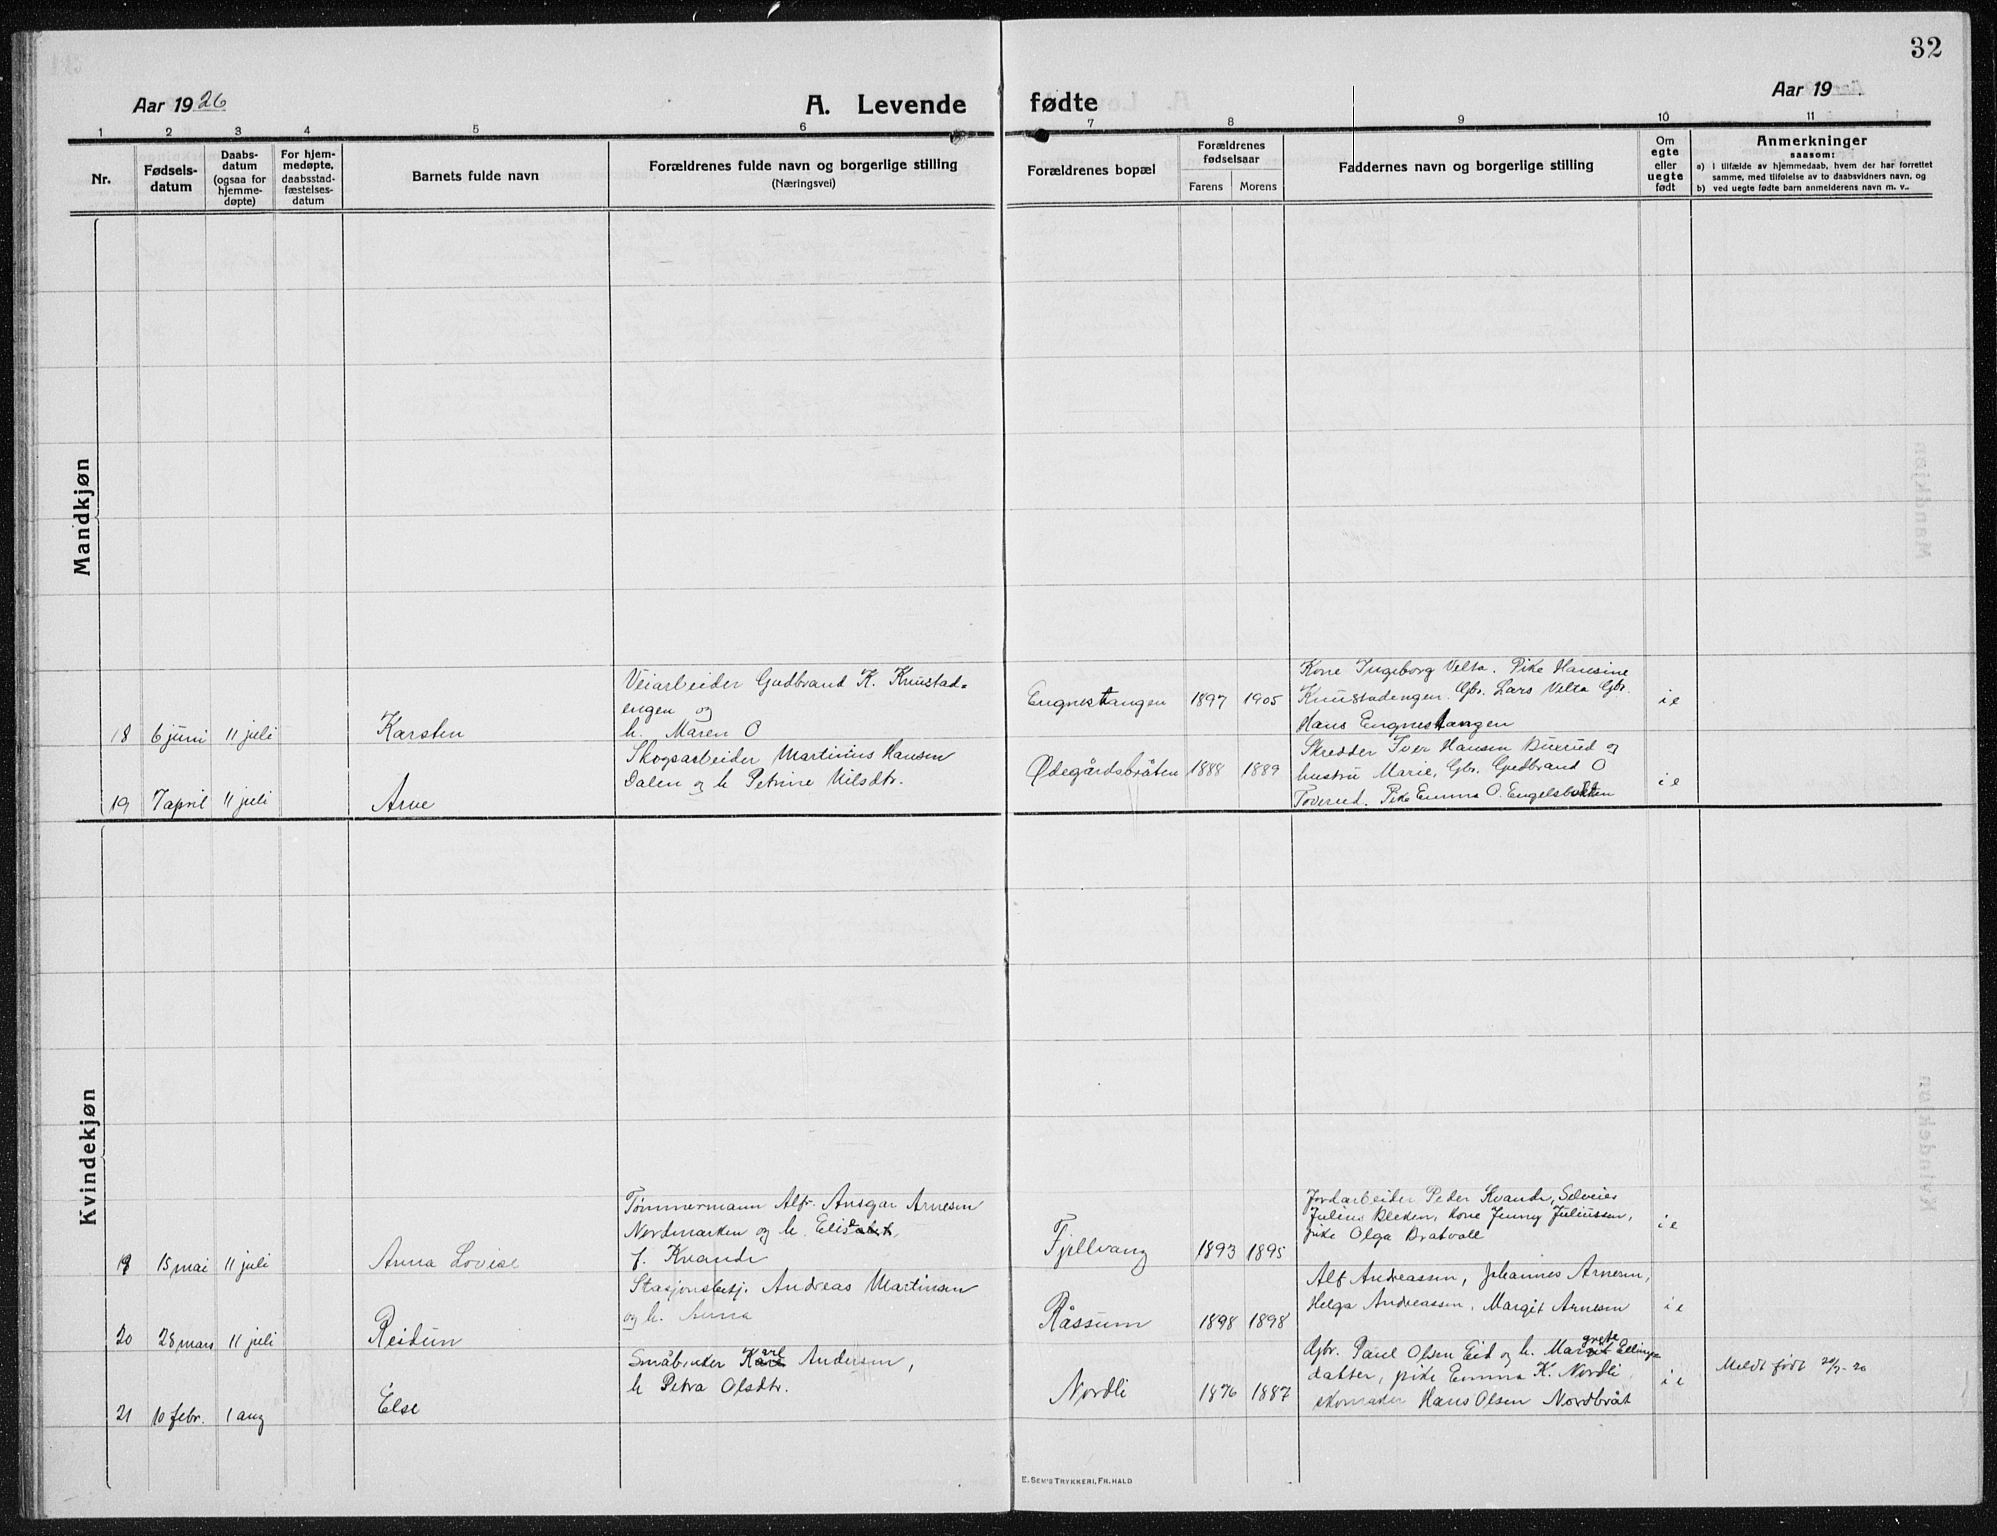 32
Aar 1926
A. Levende fødte
Aar 19
1 2 3 4 5 6 7 8 9 10 11
Nr.
Fødsels-
datum
Daabs-
datum
(ogsaa for
hjemme-
døpte)
For hjem-
medøpte,
daabsstad-
fæstelses-
datum
Barnets fulde navn
Forældrenes fulde navn og borgerlige stilling
(Næringsvei)
Forældrenes bopæl
Forældrenes
fødselsaar
Farens Morens
Faddernes navn og borgerlige stilling
Om
egte
eller
uegte
født
Anmerkninger
saasom:
a) i tilfælde av hjemmedaab, hvem der har forrettet
samme, med tilføielse av to daabsvidners navn, og
b) ved uegte fødte barn anmelderens navn m. v..
Mandkjøn
18 6 juni 11 juli Karsten
Veiarbeider Gudbrand K. Knustad-
engen og
h. Maren O
Engnestangen 1897 1905
Kone Ingeborg Velta. Pike Hansine
Knustadengen. Gbr. Lars Velta Gbr.
Hans Engnestangen
i e
19 7 april 11 juli Arne
Skogsarbeider Martinius Hansen
Dalen og h Petrine Nilsdtr.
Ødegårdsbråten 1888 1889
Skredder Iver Hansen Buerud og
hustru Marie, Gbr. Gudbrand O
Toverud. Pike Emma O. Engelsbukten
i e
Kvindekjøn
19 15 mai 11 juli Anna Lovise
Tømmermann Alfr. Ansgar Arnesen
Nordmarken og h. Elisabet,
f. Kvande
Fjellvang 1893 1895
Jordarbeider Peder Kvande, Selveier
Julius Bleken, kone Jenny Juliussen,
pike Olga Bratvoll
i e
20 28 mars 11 juli Reidun
Stasjonsbetj. Andreas Martinsen
og h. Anna
Råssum 1898 1898
Alf Andreassen, Johannes Arnesen,
Helga Andreassen, Margit Arnesen
i e
21 10 febr. 1 aug Else
Småbruker Karl Andersen,
h Petra Olsdtr.
Nordli 1876 1887
Gbr. Paul Olsen Eid og h. Margrete Ellings-
datter, pike Emma K. Nordli,
skomaker Hans Olsen Nordbråt
i e
Meldt født
E. SEM'S TRYKKERI, FR.HALD